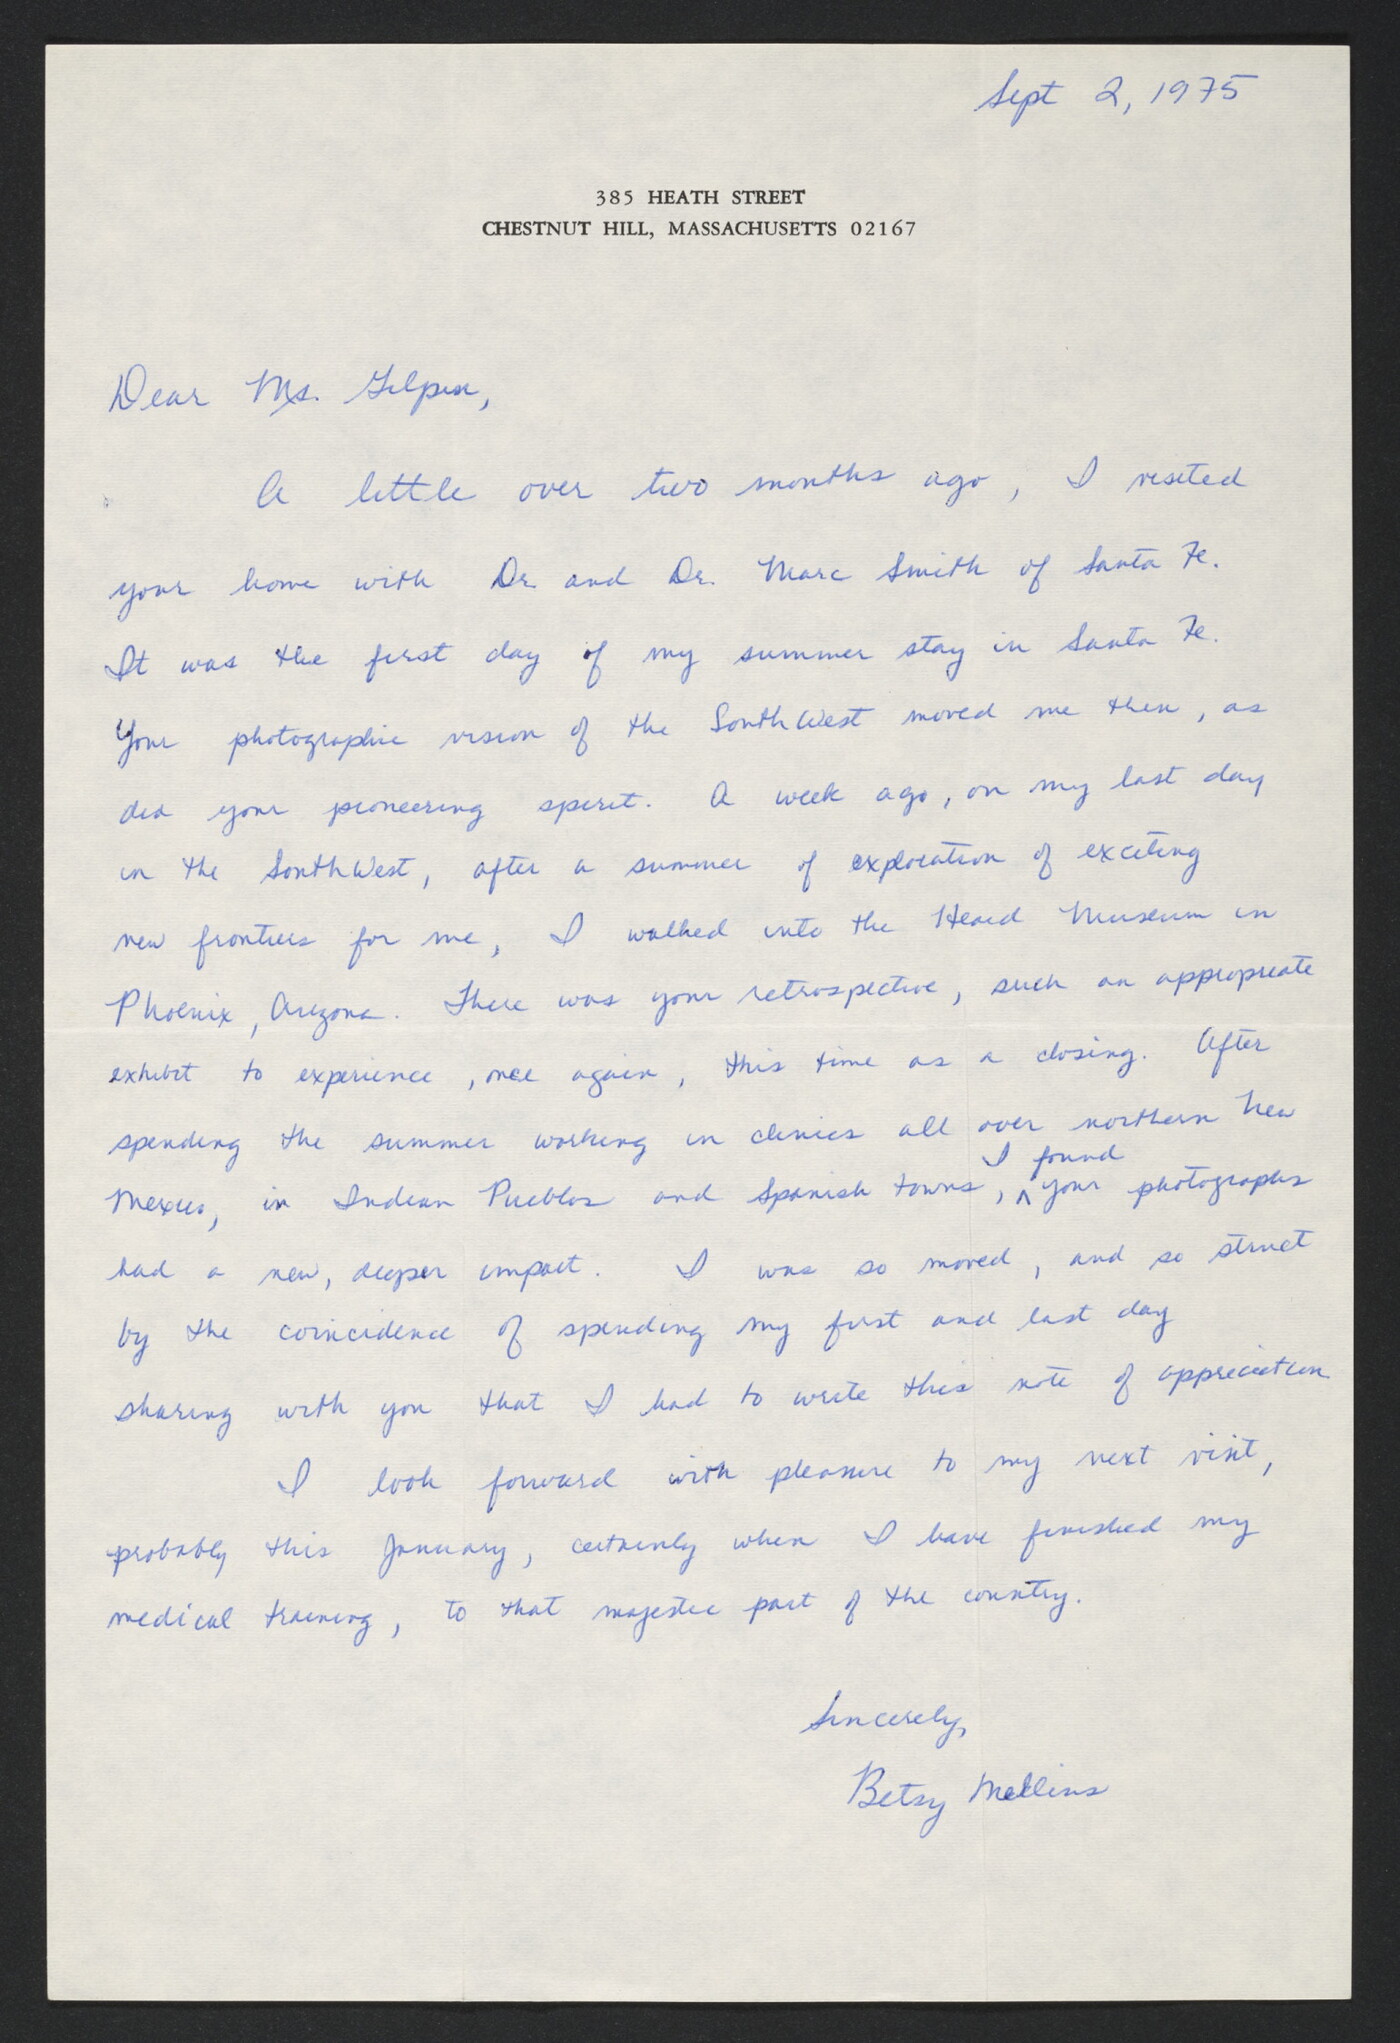 Sept 2, 1975
385 HEATH STREET
CHESTNUT HILL, MASSACHUSETTS 02167
Dear Ms. Gilpin,
A little over two months ago, I visited
your home with Dr. and Dr. Marc Smith of Santa Fe.
It was the first day of my summer stay in Santa Fe.
Your photographic vision of the SouthWest moved me then, as
did your pioneering spirit. A week ago, on my last day
in the SouthWest, after a summer of exploration of exciting
new frontiers for me, I walked into the Heard Museum in
Phoenix, Arizona. There was your retrospective, such an appropriate
exhibit to experience, once again, this time as a closing. After
spending the summer working in clinics all over northern New
Mexico, in Indian Pueblos and Spanish towns, I found your photographs
had a new, deeper impact. I was so moved, and so struct
by the coincidence of spending my first and last day
sharing with you that I had to write this note of appreciation
I look forward with pleasure to my next visit,
probably this January, certainly when I have finished my
medical training, to that majestic part of the country.
Sincerely,
Betsy Mellins